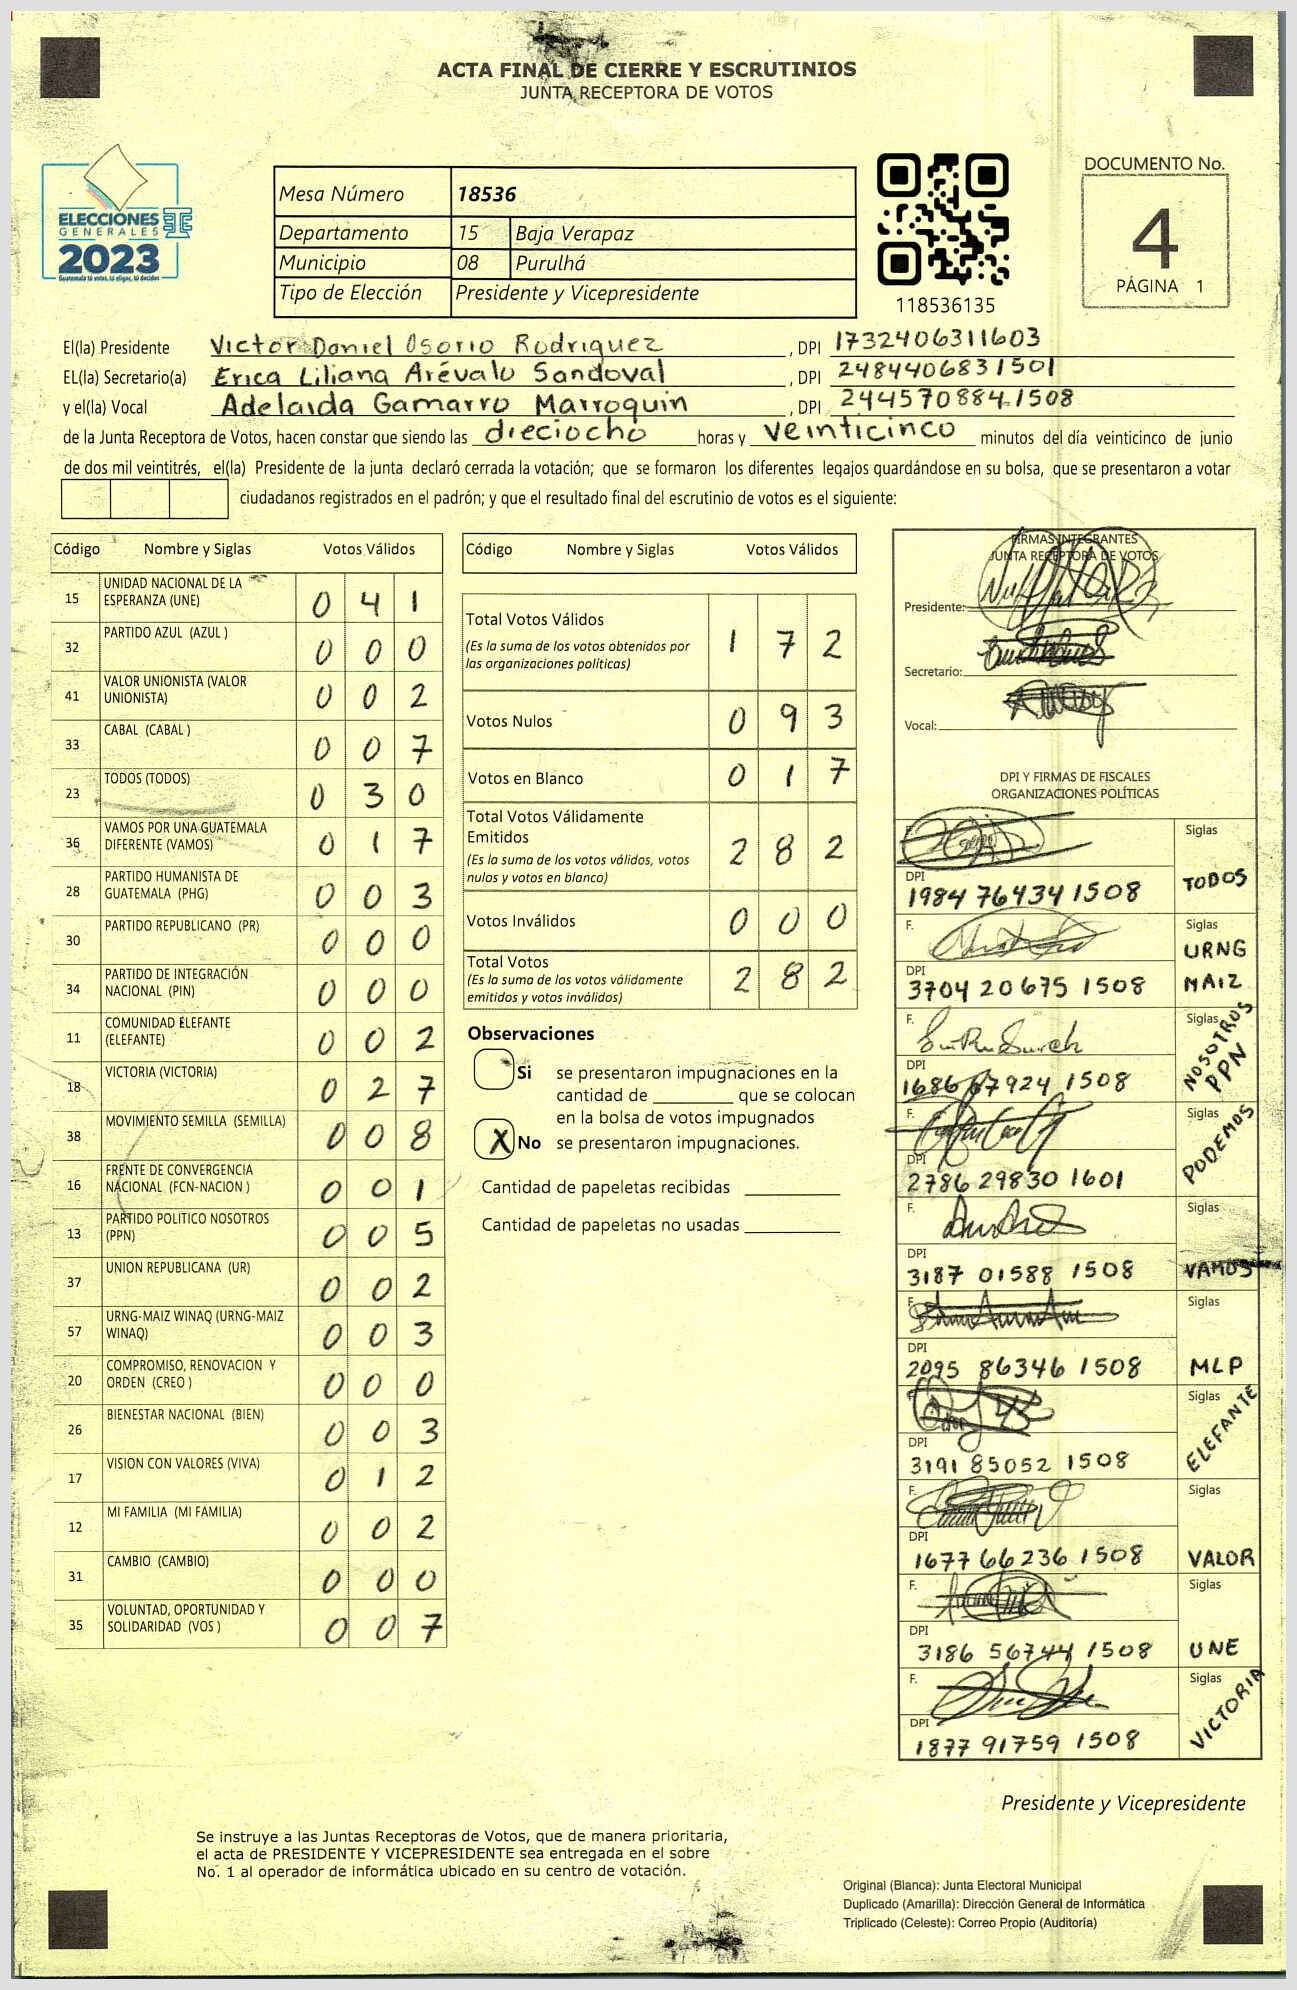 ACTA FINAL DE CIERRE Y ESCRUTINIOS
JUNTA RECEPTORA DE VOTOS
ELECCIONES
GENERALES
2023
Guatemala tú votas, tú eliges, tú decides
Mesa Número 18536
Departamento 15 Baja Verapaz
Municipio 08 Purulhá
Tipo de Elección Presidente y Vicepresidente
118536135
DOCUMENTO No.
4
PÁGINA 1
El(la) Presidente Victor Daniel Osorio Rodriguez , DPI 1732406311603
EL(la) Secretario(a) Erica Liliana Arévalo Sandoval , DPI 2484406831501
y el(la) Vocal Adelaida Gamarro Marroquin , DPI 2445708841508
de la Junta Receptora de Votos, hacen constar que siendo las dieciocho horas y veinticinco minutos del día veinticinco de junio
de dos mil veintitrés, el(la) Presidente de la junta declaró cerrada la votación; que se formaron los diferentes legajos guardándose en su bolsa, que se presentaron a votar
ciudadanos registrados en el padrón; y que el resultado final del escrutinio de votos es el siguiente:
Código Nombre y Siglas Votos Válidos
15 UNIDAD NACIONAL DE LA ESPERANZA (UNE) 0 4 1
32 PARTIDO AZUL (AZUL ) 0 0 0
41 VALOR UNIONISTA (VALOR UNIONISTA) 0 0 2
33 CABAL (CABAL ) 0 0 7
23 TODOS (TODOS) 0 3 0
36 VAMOS POR UNA GUATEMALA DIFERENTE (VAMOS) 0 1 7
28 PARTIDO HUMANISTA DE GUATEMALA (PHG) 0 0 3
30 PARTIDO REPUBLICANO (PR) 0 0 0
34 PARTIDO DE INTEGRACIÓN NACIONAL (PIN) 0 0 0
11 COMUNIDAD ELEFANTE (ELEFANTE) 0 0 2
18 VICTORIA (VICTORIA) 0 2 7
38 MOVIMIENTO SEMILLA (SEMILLA) 0 0 8
16 FRENTE DE CONVERGENCIA NACIONAL (FCN-NACION ) 0 0 1
13 PARTIDO POLITICO NOSOTROS (PPN) 0 0 5
37 UNION REPUBLICANA (UR) 0 0 2
57 URNG-MAIZ WINAQ (URNG-MAIZ WINAQ) 0 0 3
20 COMPROMISO, RENOVACION Y ORDEN (CREO ) 0 0 0
26 BIENESTAR NACIONAL (BIEN) 0 0 3
17 VISION CON VALORES (VIVA) 0 1 2
12 MI FAMILIA (MI FAMILIA) 0 0 2
31 CAMBIO (CAMBIO) 0 0 0
35 VOLUNTAD, OPORTUNIDAD Y SOLIDARIDAD (VOS ) 0 0 7
Código Nombre y Siglas Votos Válidos
Total Votos Válidos 1 7 2
(Es la suma de los votos obtenidos por
las organizaciones políticas)
Votos Nulos 0 9 3
Votos en Blanco 0 1 7
Total Votos Válidamente
Emitidos 2 8 2
(Es la suma de los votos válidos, votos
nulos y votos en blanco)
Votos Inválidos 0 0 0
Total Votos 2 8 2
(Es la suma de los votos válidamente
emitidos y votos inválidos)
Observaciones
Si se presentaron impugnaciones en la
cantidad de ________ que se colocan
en la bolsa de votos impugnados
X No se presentaron impugnaciones.
Cantidad de papeletas recibidas
Cantidad de papeletas no usadas
FIRMAS INTEGRANTES
JUNTA RECEPTORA DE VOTOS
Presidente:
Secretario:
Vocal:
DPI Y FIRMAS DE FISCALES
ORGANIZACIONES POLÍTICAS
F. Siglas
DPI
1984 76434 1508 TODOS
F. Siglas
DPI URNG
3704 20675 1508 MAIZ
F. Siglas
DPI NOSOTROS
1686 67924 1508 PPN
F. Siglas
DPI
2786 29830 1601 PODEMOS
F. Siglas
DPI
3187 01588 1508 VAMOS
F. Siglas
DPI
2095 86346 1508 MLP
F. Siglas
DPI
3191 85052 1508 ELEFANTE
F. Siglas
DPI
1677 66236 1508 VALOR
F. Siglas
DPI
3186 56744 1508 UNE
F. Siglas
DPI
1877 91759 1508 VICTORIA
Presidente y Vicepresidente
Se instruye a las Juntas Receptoras de Votos, que de manera prioritaria,
el acta de PRESIDENTE Y VICEPRESIDENTE sea entregada en el sobre
No. 1 al operador de informática ubicado en su centro de votación.
Original (Blanca): Junta Electoral Municipal
Duplicado (Amarilla): Dirección General de Informática
Triplicado (Celeste): Correo Propio (Auditoría)